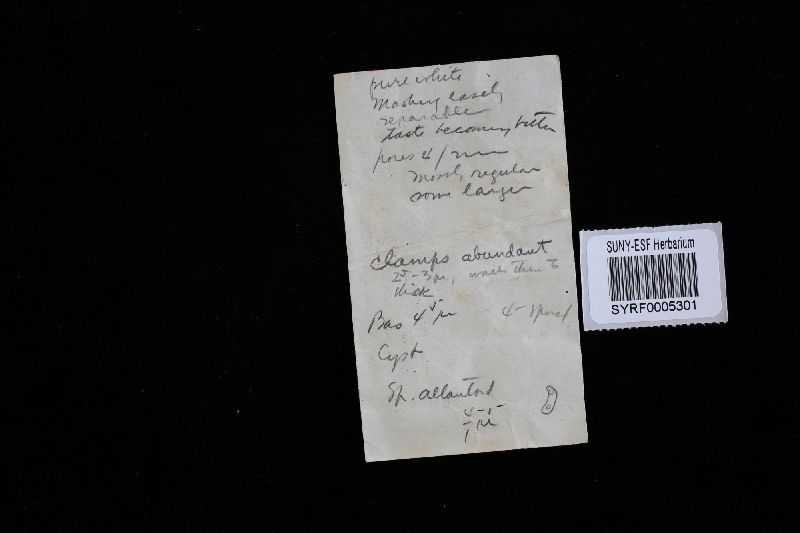 pure white
Mostly easily
separable
taste becoming bitter
pores 4/mm
Mostly regular
some larger
Clamps abundant
walls thin to
thick
Bas 4 µ 4-spored
Cyst
Sp. allantoid
4-5
1 µ
SUNY-ESF Herbarium
SYRF0005301